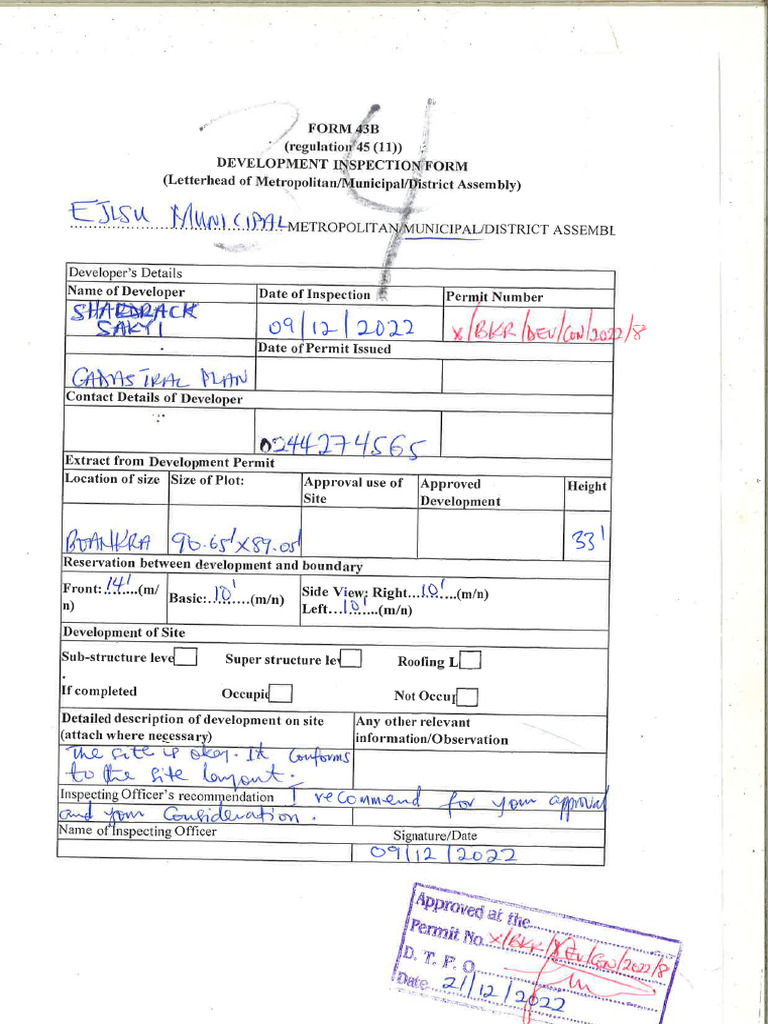 34
FORM 43B
(regulation 45 (11))
DEVELOPMENT INSPECTION FORM
(Letterhead of Metropolitan/Municipal/District Assembly)
EJISU MUNICIPAL METROPOLITAN/MUNICIPAL/DISTRICT ASSEMBL
Developer's Details
Name of Developer Date of Inspection Permit Number
SHADRACK SAKYI 09/12/2022 x/BKR/DEV/CON/2022/8
Date of Permit Issued
CADASTRAL PLAN
Contact Details of Developer
0244274565
Extract from Development Permit
Location of size Size of Plot: Approval use of Site Approved Development Height
BOANKRA 90.65'x89.05' 33'
Reservation between development and boundary
Front:14'.....(m/n) Basic:...10'......(m/n) Side View: Right...10'.....(m/n)
Left...10'......(m/n)
Development of Site
Sub-structure leve Super structure lev Roofing L
.
If completed Occupie Not Occup
Detailed description of development on site (attach where necessary) Any other relevant information/Observation
The site is okay. It conforms
to the site layout.
Inspecting Officer's recommendation I recommend for your approval
and your Consideration.
Name of Inspecting Officer Signature/Date
09/12/2022
Approved at the
Permit No. x/BKR/DEV/CON/2022/8
D. T. P. O
Date 21/12/2022